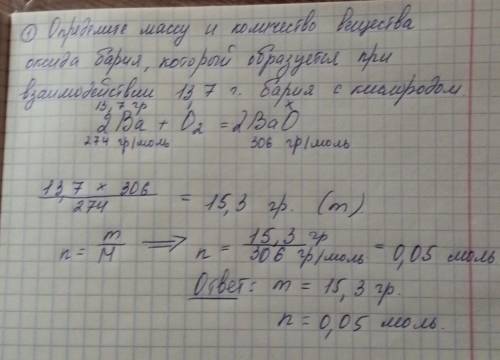 ① Определите массу и количество вещества
оксида бария, который образуется при
взаимодействии 13,7 г. бария с кислородом.
13,7 гр x
2Ba + O₂ = 2BaO
274 гр/моль 306 гр/моль
13,7 × 306 / 274 = 15,3 гр. (m)
n = m/M ⟹ n = 15,3 гр / 306 гр/моль = 0,05 моль
Ответ: m = 15,3 гр.
n = 0,05 моль.